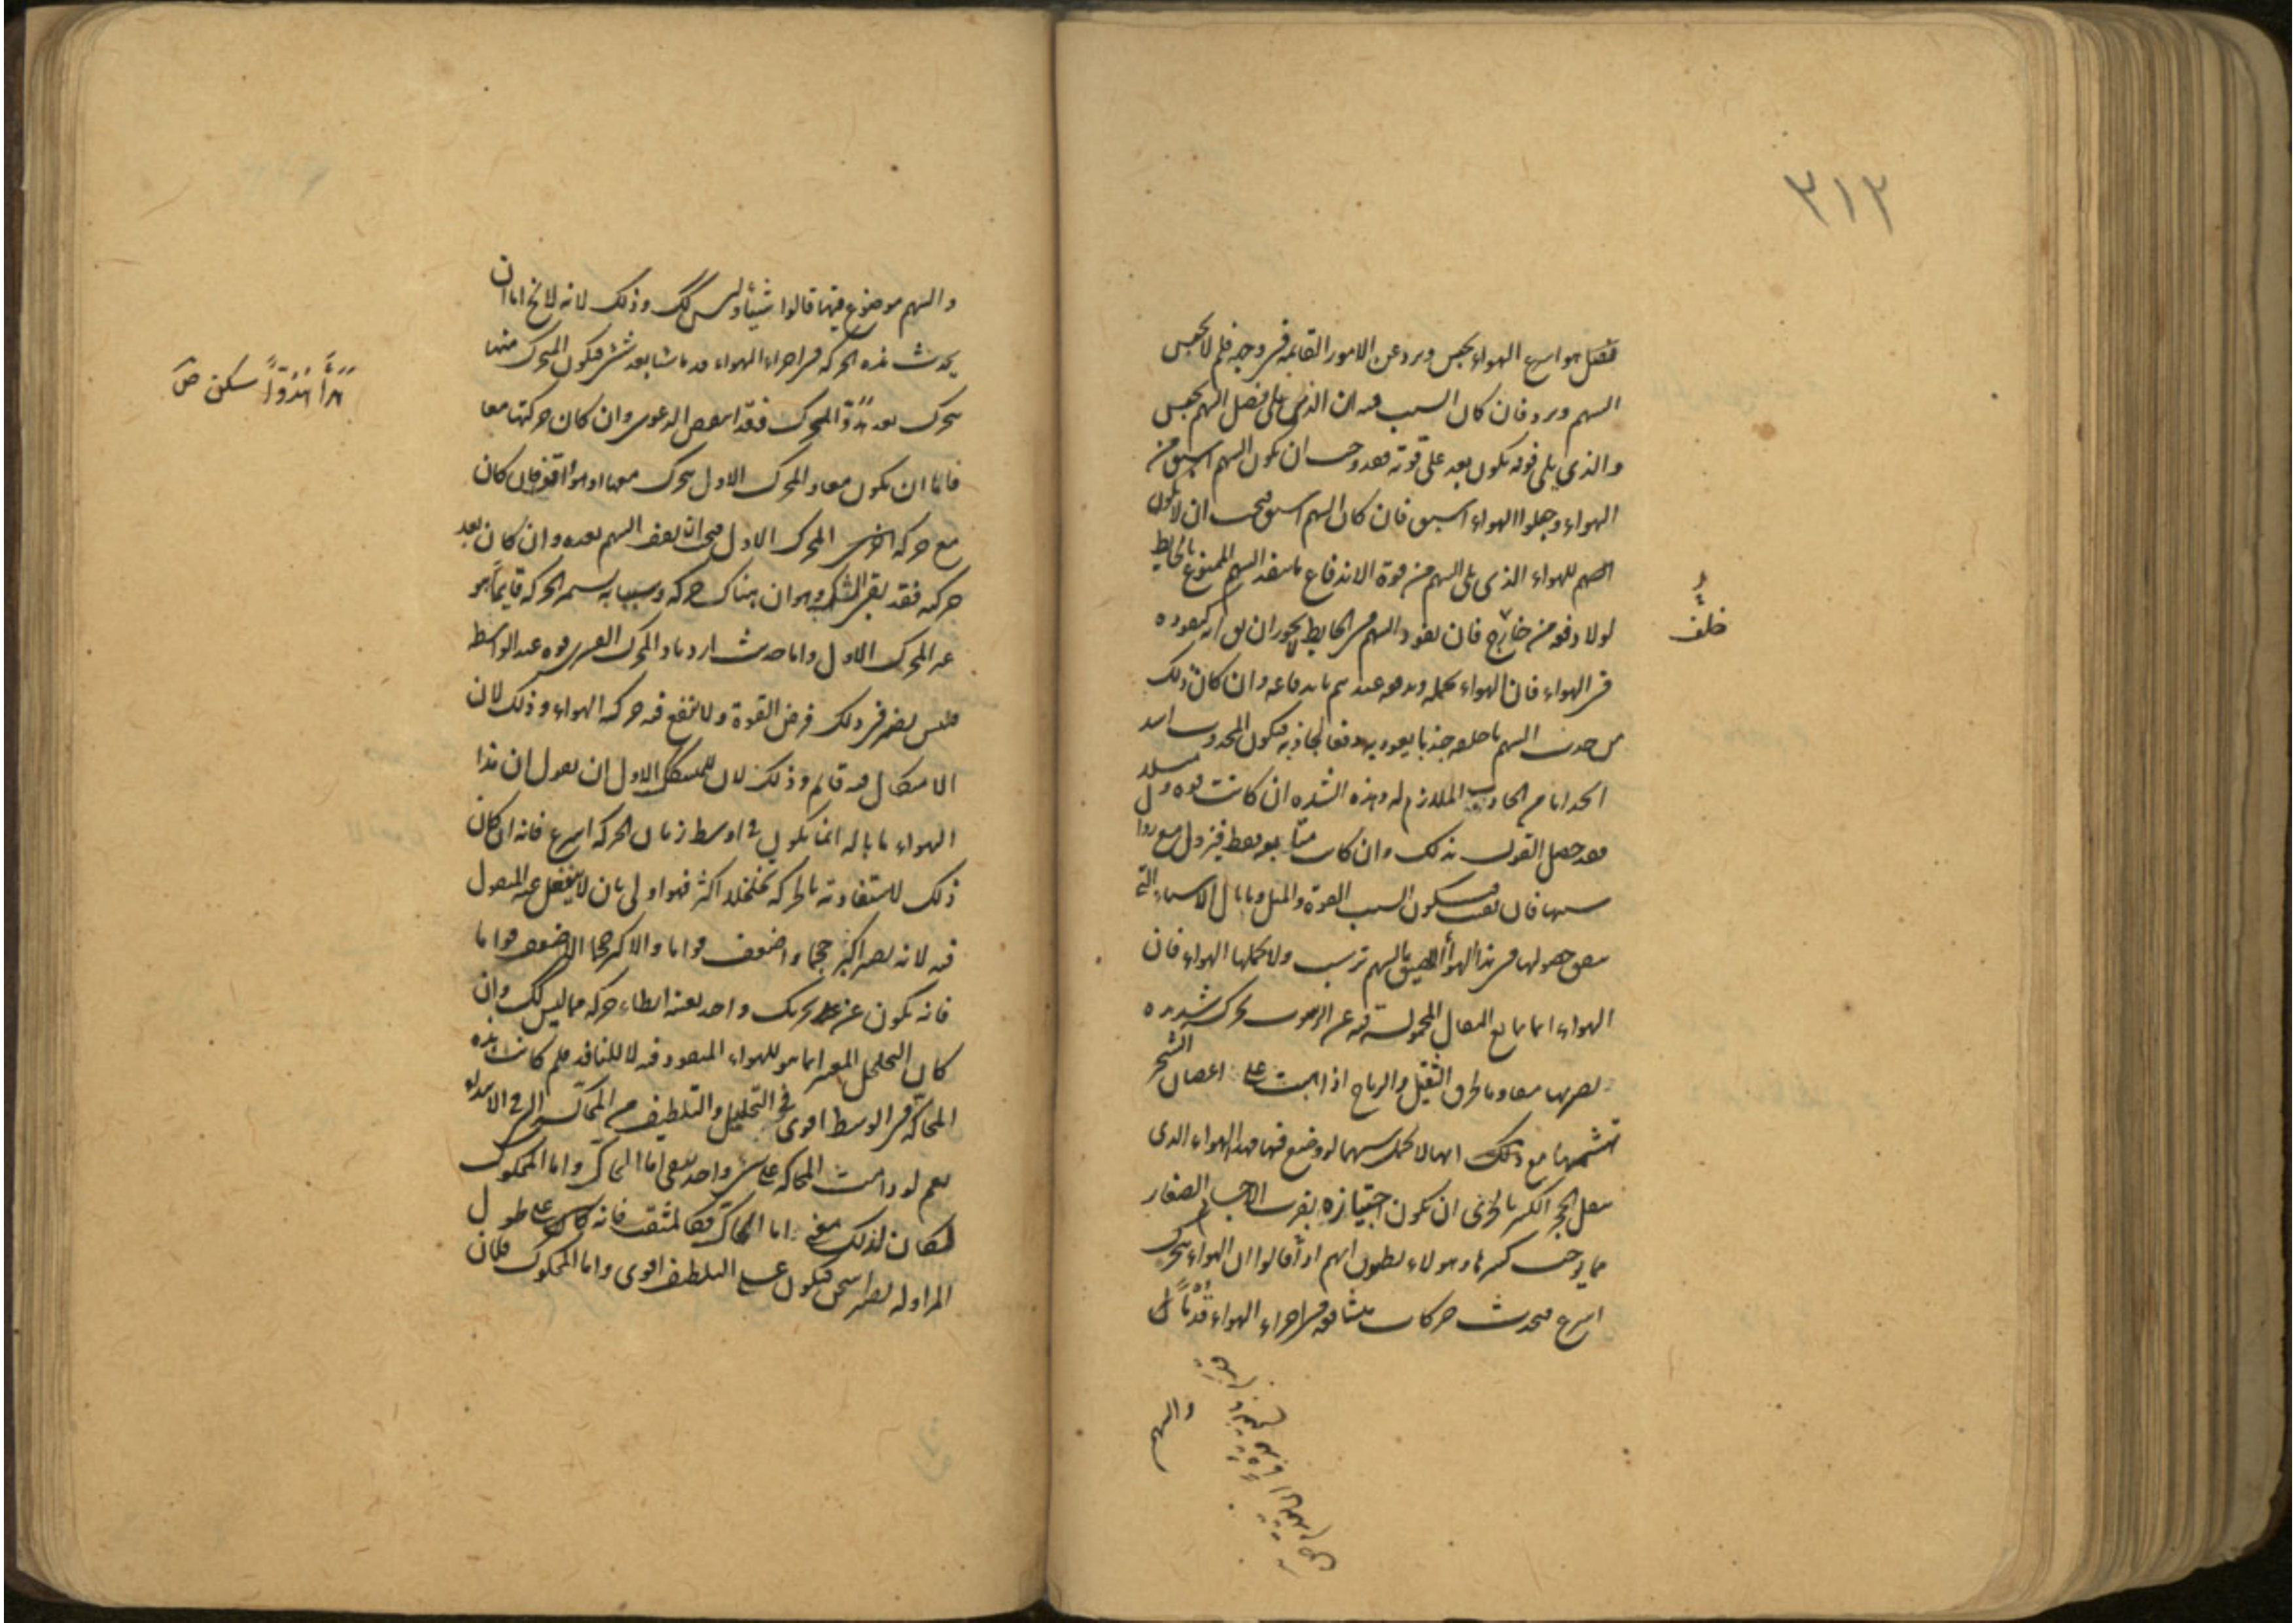 ٣١٢
فنصل هو اسرع الهواء يحبس ويرد عن الامور القائمة في وجهه فلم لا يحبس
السهم ويرد فان كان السبب فيه ان الذي يلي نصل السهم يحبس
والذي يلي فوقه يكون بعد على قوته فقد وجب ان يكون السهم اسبق من
الهواء وجعلوا الهواء اسبق فان كان السهم اسبق فيجب ان لا يكون
للهواء الذي يلي السهم من قوة الاندفاع ما ينفذ السهم الممنوع بالحايط
لولا دفعه من خارج فان نفوذ السهم في الحايط لا يجوز ان يق انه كنفوذه
في الهواء فان الهواء يحمله ويدفعه عندهم باندفاعه وان كان ذلك
من جذب السهم ما خلفه جذبا يعود به دفعا لجاذبه فيكون المجذوب اشد
انجذابا من الجاذب الملازم له وهذه الشدة ان كانت قوة وميلا
فقد حصل القول بذلك وان كانت تبعا فقط فيزول مع زوال
سببها فان بقيت فيكون السبب القوة والميل وما بال الاسباب التي
حصولها في هذا الهواء اللصيق بالسهم ترسب ولا يحملها الهواء فان
الهواء انما يمانع الثقال المحمولة فيه عن الرسوب بحركة شديدة
يصير بها مقاوما لخرق الثقيل والرياح اذا هبت على اغصان الشجر
تهشمها مع ذلك انها لا تحمل سهما لو وضع فيها فهذا الهواء الذي
ينقل الحجر الكبير بالحرى ان يكون اجتيازه بقرب الاجسام الصغار
مما يوجب كسرها وهؤلاء يظنون انهم اذا قالوا ان الهواء يتحرك
اسرع فيحدث حركات متشافعة في اجزاء الهواء قدما
خلف
والسهم
والسهم موضوع فيها قالوا شيئا وليس كك وذلك لانه لا يخ اما ان
يحدث هذه الحركة في اجزاء الهواء قدما شيئا بعد شئ فيكون المتحرك منها
يتحرك بعد هدو المحرك فقد انتقض الدعوى وان كان حركتها معا
فاما ان يكون معا والمحرك الاول يتحرك معها او هو واقف فان كان
مع حركة اخرى المحرك الاول فيجب ان يقف السهم بعده وان كان بعد
حركته فقد بقى الشك وهو ان هناك حركة وسببا به يستمر الحركة قايما هو
غير المحرك الاول واما حدث ازدياد المحرك القسرى قوة عند الواسطة
فليس يضر في ذلك فرض القوة ولا ينفع فيه حركة الهواء وذلك لان
الاشكال فيه قائم وذلك لان للمتشكك الاول ان يقول ان هذا
الهواء ما باله انما يكون في اوسط زمان الحركة اسرع فانه ان كان
ذلك لاستفادته بالحركة تخلخلا اكثر فهو اولى بان لا ينفعل عنه المنقول
فيه لانه يصير اكبر حجما واضعف قواما والاكبر حجما الاضعف قواما
فانه يكون عن تحريك واحد بعينه ابطاء حركة مما ليس كك وان
كان التخلخل المعتبر انما هو للهواء المنفوذ فيه لا للنافذ فلم كانت هذه
المحاكة في الوسط اقوى في التحليل والتلطيف من المحاكة التي في الابتداء
نعم لو دامت المحاكة على شئ واحد بقى اما الحاك واما المحكوك
لكان لذلك معنى اما الحاك فكالمثقب فانه كان على طول
المزاولة يصير اسخن فيكون على التلطيف اقوى واما المحكوك فلان
هدأ هدوءا سكن ص